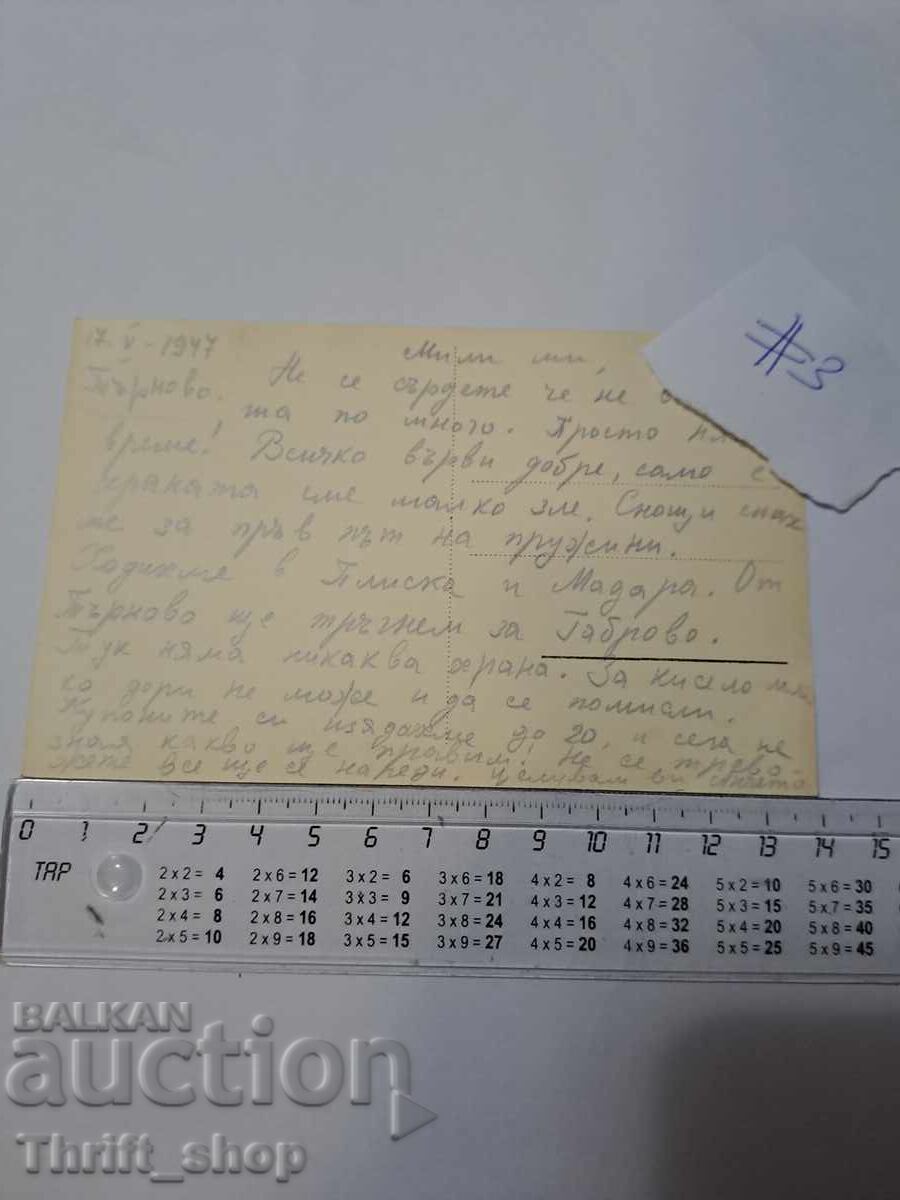 17. V - 1947
Мили ми,
Търново. Не се сърдете че не
та по много. Просто
време! Всичко върви добре, само с
храната сме малко зле. Снощи спах
ме за пръв път на пружини.
Ходихме в Плиска и Мадара. От
Търново ще тръгнем за Габрово.
Тук няма никаква храна. За кисело мля
ко дори не може и да се помисли.
Купоните си изядахме до 20, и сега не
зная какво ще правим! Не се трево
жете все ще се нареди. Целивам ви
#3
0 1 2 3 4 5 6 7 8 9 10 11 12 13 14 15
TAP
2 x 2 = 4 2 x 6 = 12 3 x 2 = 6 3 x 6 = 18 4 x 2 = 8 4 x 6 = 24 5 x 2 = 10 5 x 6 = 30
2 x 3 = 6 2 x 7 = 14 3 x 3 = 9 3 x 7 = 21 4 x 3 = 12 4 x 7 = 28 5 x 3 = 15 5 x 7 = 35
2 x 4 = 8 2 x 8 = 16 3 x 4 = 12 3 x 8 = 24 4 x 4 = 16 4 x 8 = 32 5 x 4 = 20 5 x 8 = 40
2 x 5 = 10 2 x 9 = 18 3 x 5 = 15 3 x 9 = 27 4 x 5 = 20 4 x 9 = 36 5 x 5 = 25 5 x 9 = 45
BALKAN
auction
Thrift_shop